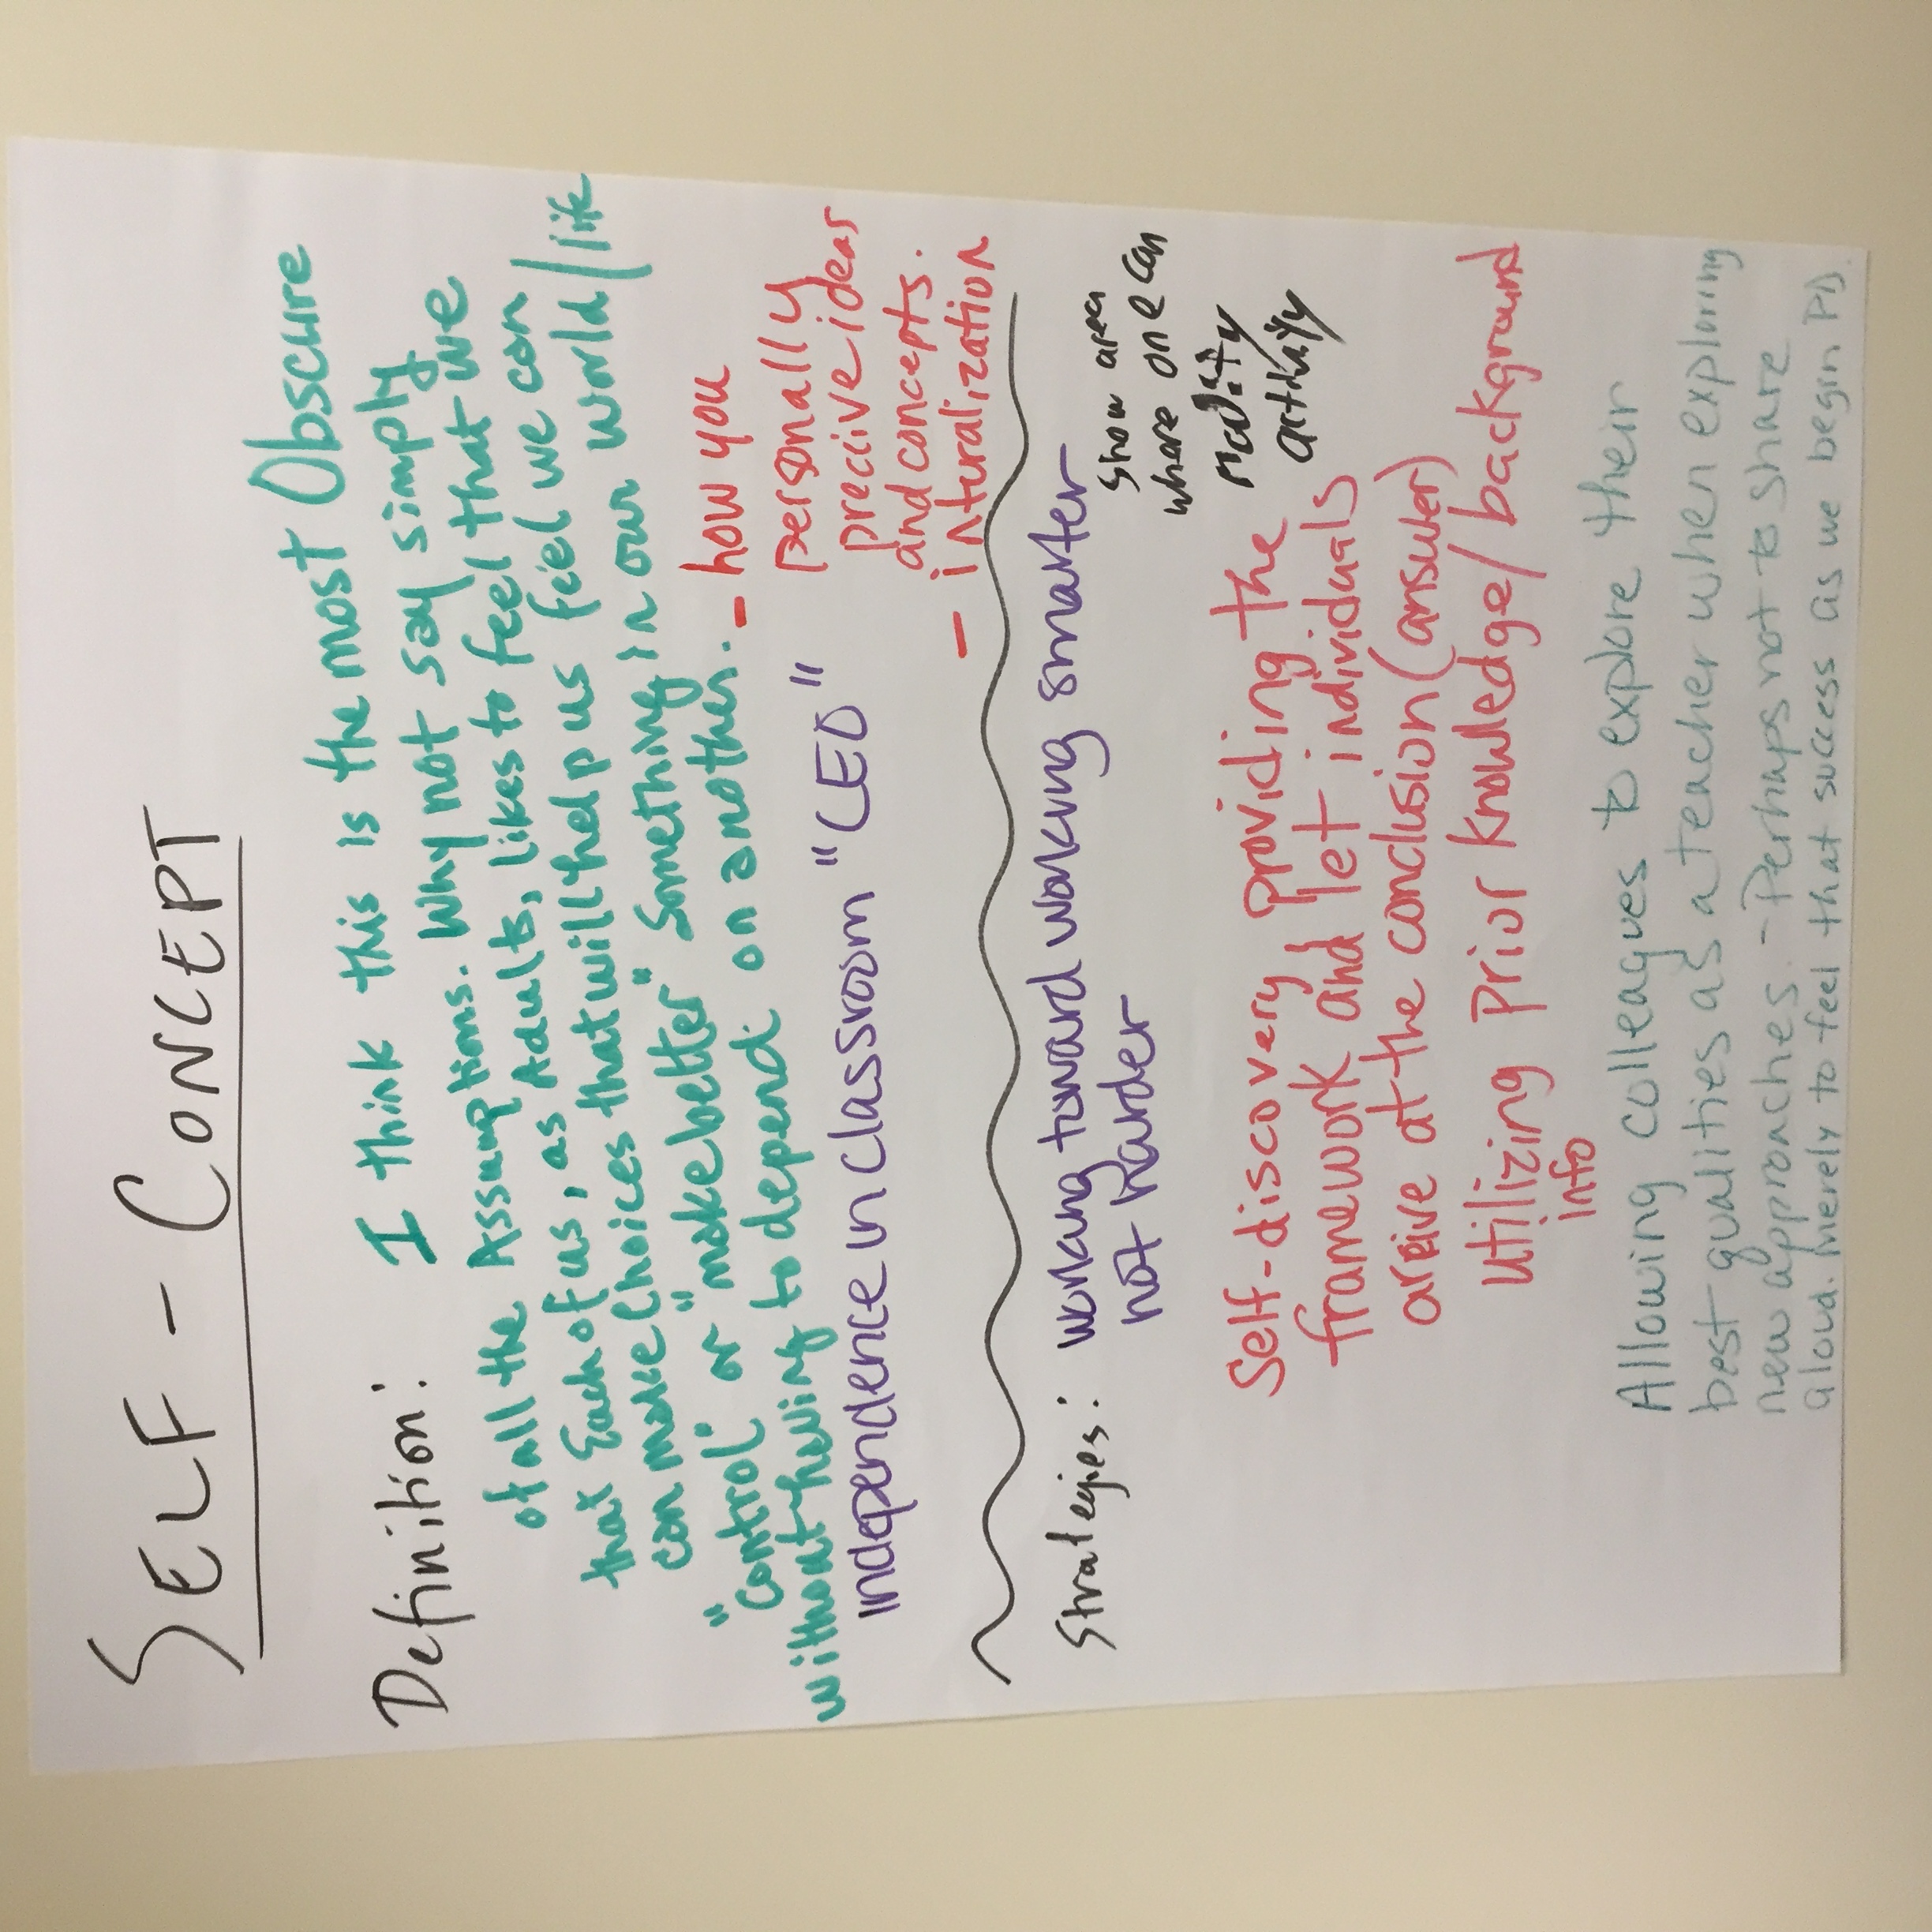 SELF - CONCEPT
Definition: I think this is the most Obscure
of all the Assumptions. Why not say simply
that Each of us, as Adults, likes to feel that we
can make choices that will help us feel we can
"control" or "make better" something in our world/life
without having to depend on another.
- how you
personally
preceive ideas
and concepts.
- interalization
independence in classroom "CEO"
Strategies: working toward working smarter
not harder
Show area
where one can
modify
activity
Self-discovery providing the
framework and let individals
arrive at the conclusion (answer)
Utilizing prior knowledge/background
info
Allowing colleagues to explore their
best qualities as a teacher when exploring
new approaches. - Perhaps not to share
aloud. Merely to feel that success as we begin PD.